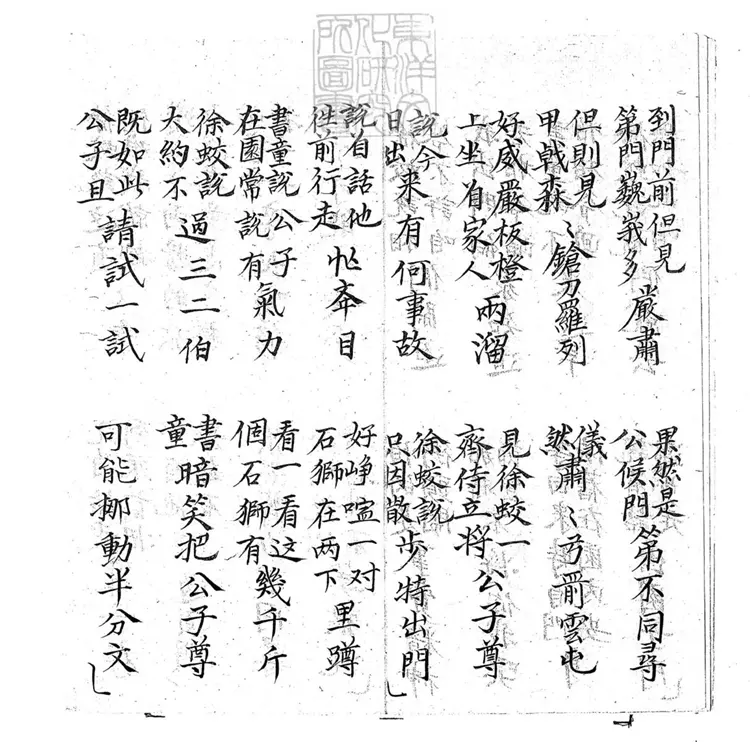 到門前但見第門巍峩多嚴肅
果然是公候門第不同尋
但則見甲戟森〻鎗刀羅列
儀然肅〻弓箭雲屯
好威嚴板橙上坐着家人兩溜
見徐蛟一齊侍立将公子尊
說今日出来有何事故
徐蛟說只因散步特出門
說着話他徃前行走忙奔目
好崢一对石獅在两下里蹲
書童說公子在園常說有氣力
看一看这個石獅有幾千斤
徐蛟說大約不過三二伯
書童暗笑把公子尊
既如此公子且請試一試
可能挪動半分文